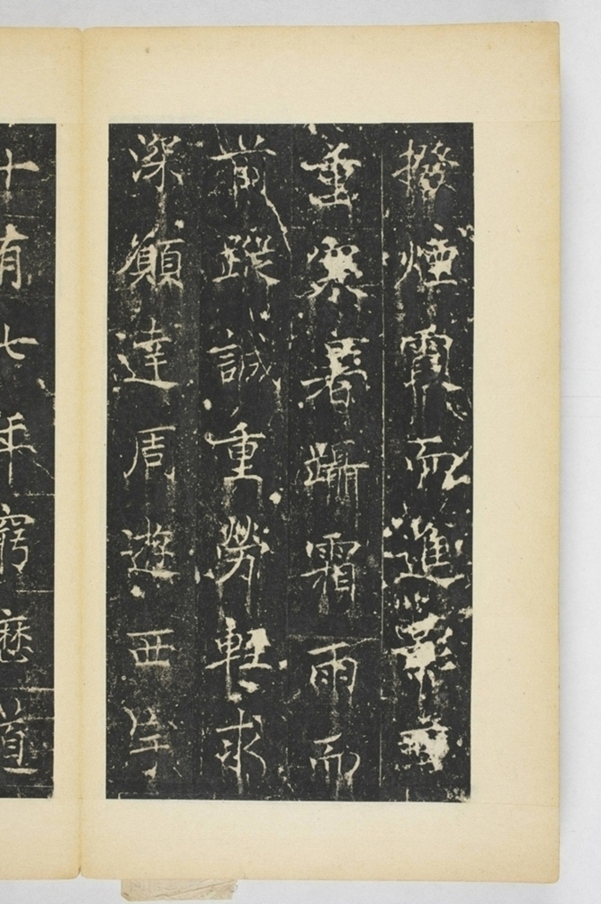 撥煙霞而進影
重寒暑躡霜雨而
前蹤誠重勞輕求
深願達周遊西宇
十有七年窮歷道